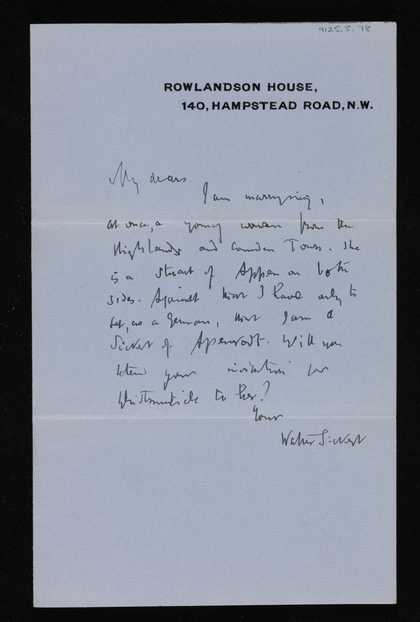 9125.5.18
ROWLANDSON HOUSE,
140, HAMPSTEAD ROAD, N.W.
My dears
I am marrying,
at once, a young woman from the
Highlands and Camden Town. She
is a Stuart of Appen on both
sides. Against that I have only to
set, as a German, that I am a
Sickert of Apenradt. Will you
extend your invitation for
Whitsuntide to her?
Yours
Walter Sickert